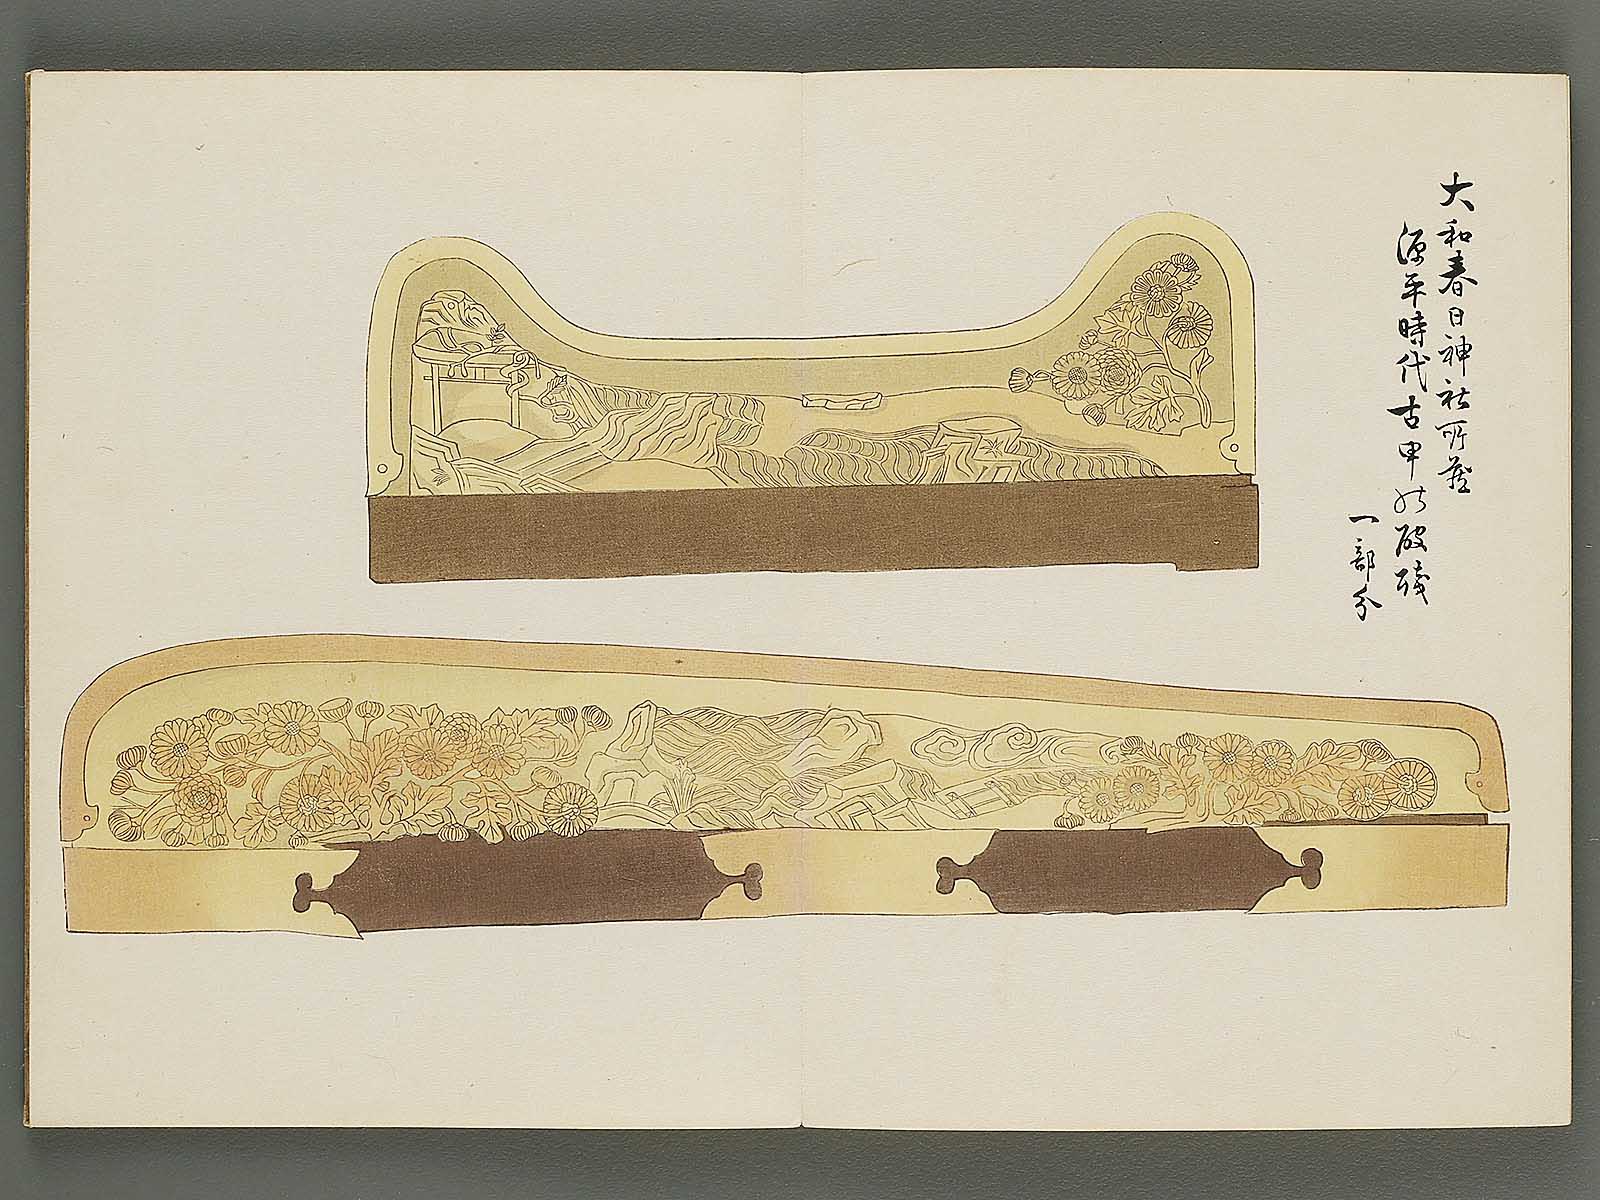 大和春日神社所蔵
源平時代古甲の破残
一部分